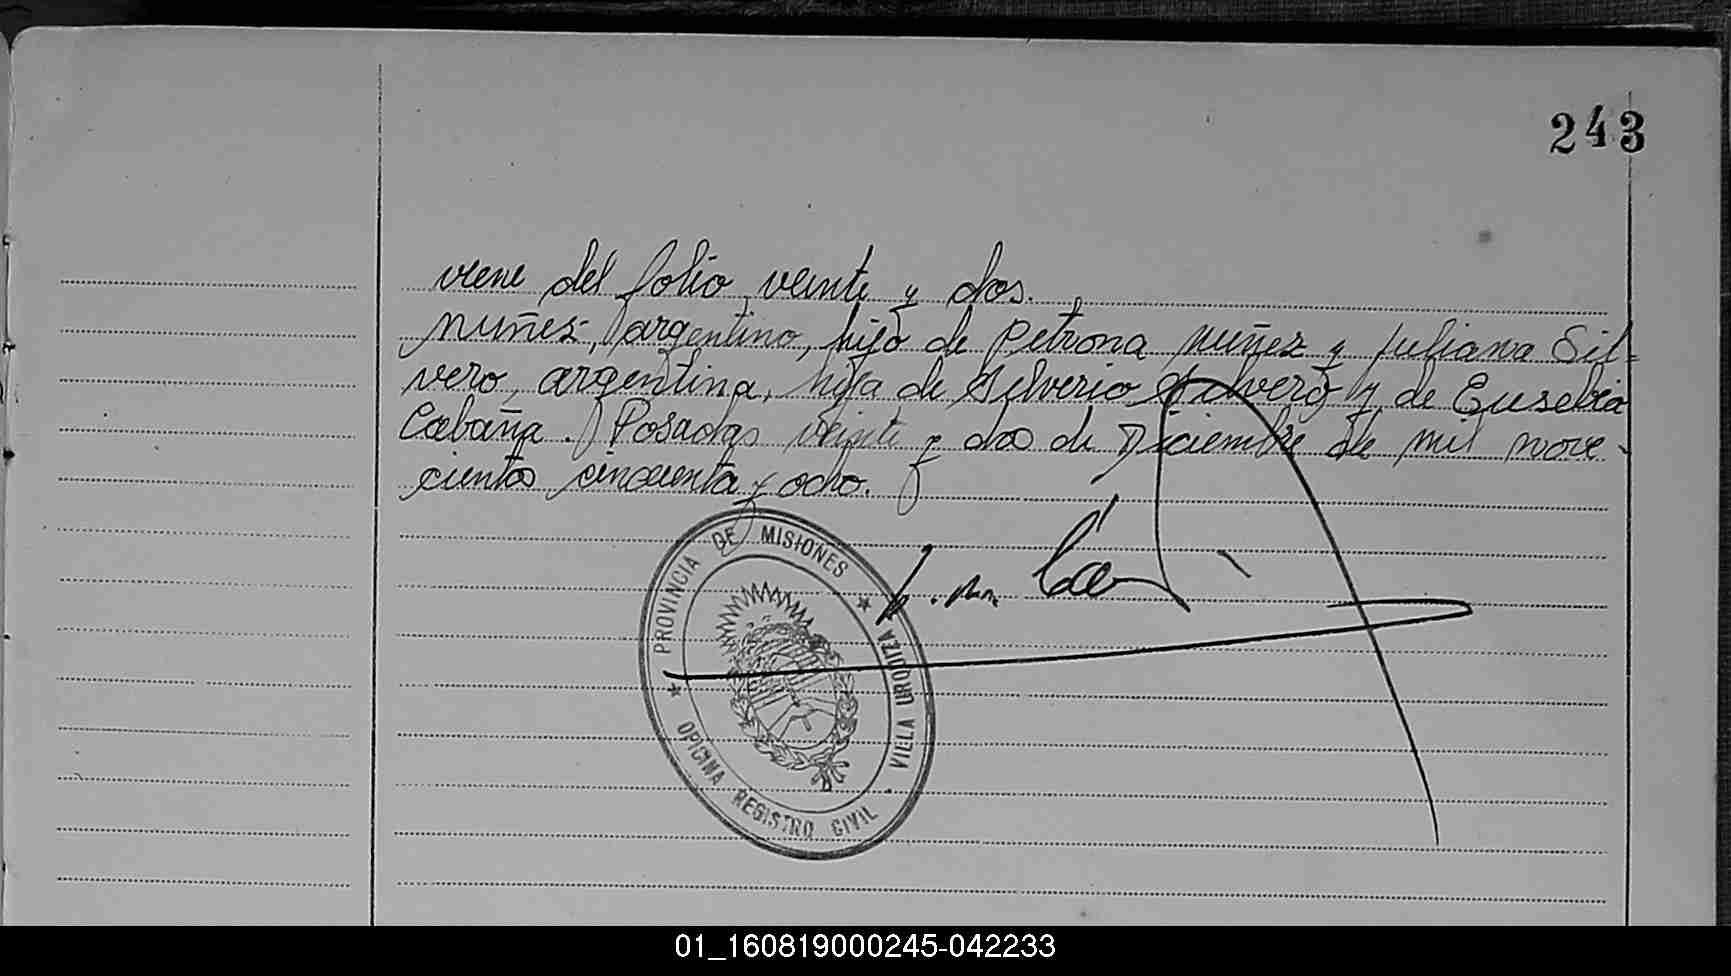 243
viene del folio veinte y dos.
Nuñez, argentino, hijo de Petrona Nuñez y Juliana Sil-
vero, argentina, hija de Silverio Silvero y de Eusebia
Cabaña. Posadas veinte y dos de Diciembre de mil nove-
cientos cincuenta y ocho.
PROVINCIA DE MISIONES
VILLA URQUIZA
OFICINA REGISTRO CIVIL
01_160819000245-042233